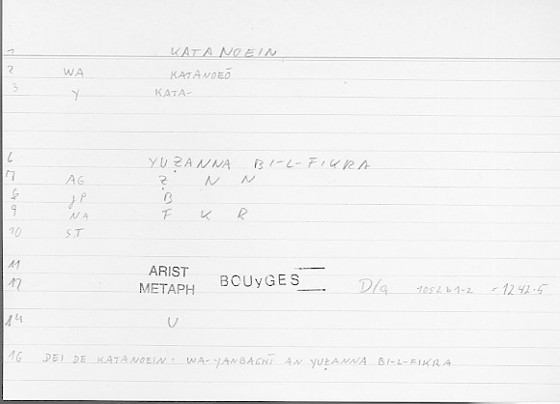 1 KATANOEIN
2 WA KATANOEŌ
3 Y KATA-
6 YUẒANNA BI-L-FIKRA
7 AG Ẓ N N
8 JP B
9 NA F K R
10 ST
11 ARIST
12 METAPH BOUyGES D/a 1052b1-2 = 1242.5
14 U
16 DEI DE KATANOEIN: WA-YANBAGHĪ AN YUẒANNA BI-L-FIKRA